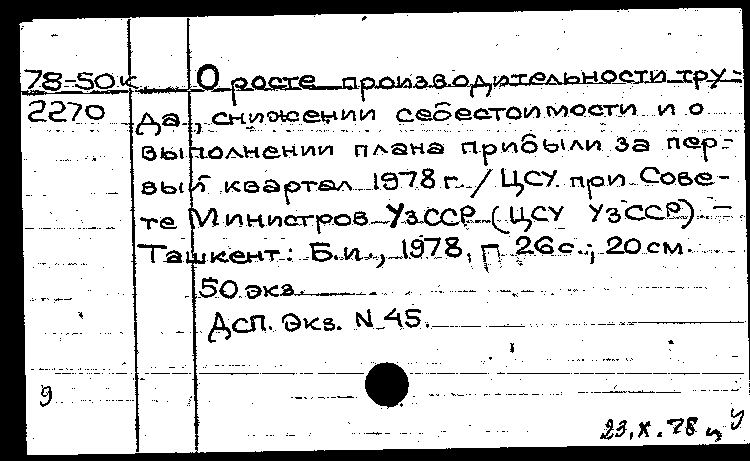 78-50к О росте производительности тру-
2270 да, снижении себестоимости и о
выполнении плана прибыли за пер-
вый квартал 1978 г. / ЦСУ при Сове-
те Министров УзССР (ЦСУ УзССР). –
Ташкент: Б.и., 1978. – 26 с.; 20 см.
50 экз.
Дсп. Экз. N 45.
9
23.X.78